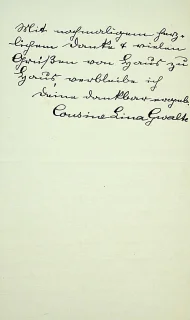 Mit nochmaligem herz-
lichem Danke & vielen
Grüßen von Haus zu
Haus verbleibe ich
Deine dankbar ergeb.
Cousine Lina Gwalt